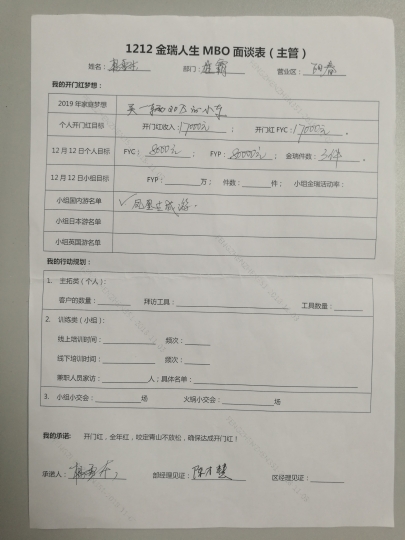 1212 金瑞人生 MBO 面谈表（主管）
姓名： 部门： 霸 营业区： 阳春
我的开门红梦想：
2019 年家庭梦想 买一辆 小车
个人开门红目标 开门红收入：17000元； 开门红 FYC：17000元。
12 月 12 日个人目标 FYC：8000元； FYP：80000元； 金瑞件数：3件。
12 月 12 日小组目标 FYP：________万； 件数：______件； 小组金瑞活动率：
小组国内游名单 ✓凤凰古城游.
小组日本游名单
小组英国游名单
我的行动规划：
1. 主拓类（个人）：
客户的数量：________ 拜访工具：________ 工具数量：________
2. 训练类（小组）：
线上培训时间：________ 频次：______
线下培训时间：________ 频次：______
兼职人员家访：________人；具体名单：________
3. 小组小交会：________场 火锅小交会：________场
我的承诺： 开门红，全年红，咬定青山不放松，确保达成开门红！
承诺人： 部经理见证： 陈 慧 区经理见证：______